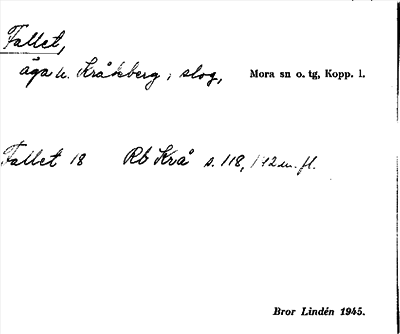 Fallet,
äga u. Kråkberg, slog, Mora sn o. tg, Kopp. l.
Fallet 18 Rb Krå s. 118, 112 m. fl.
Bror Lindén 1945.